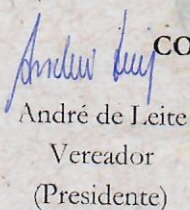 CO
André de Leite
Vereador
(Presidente)